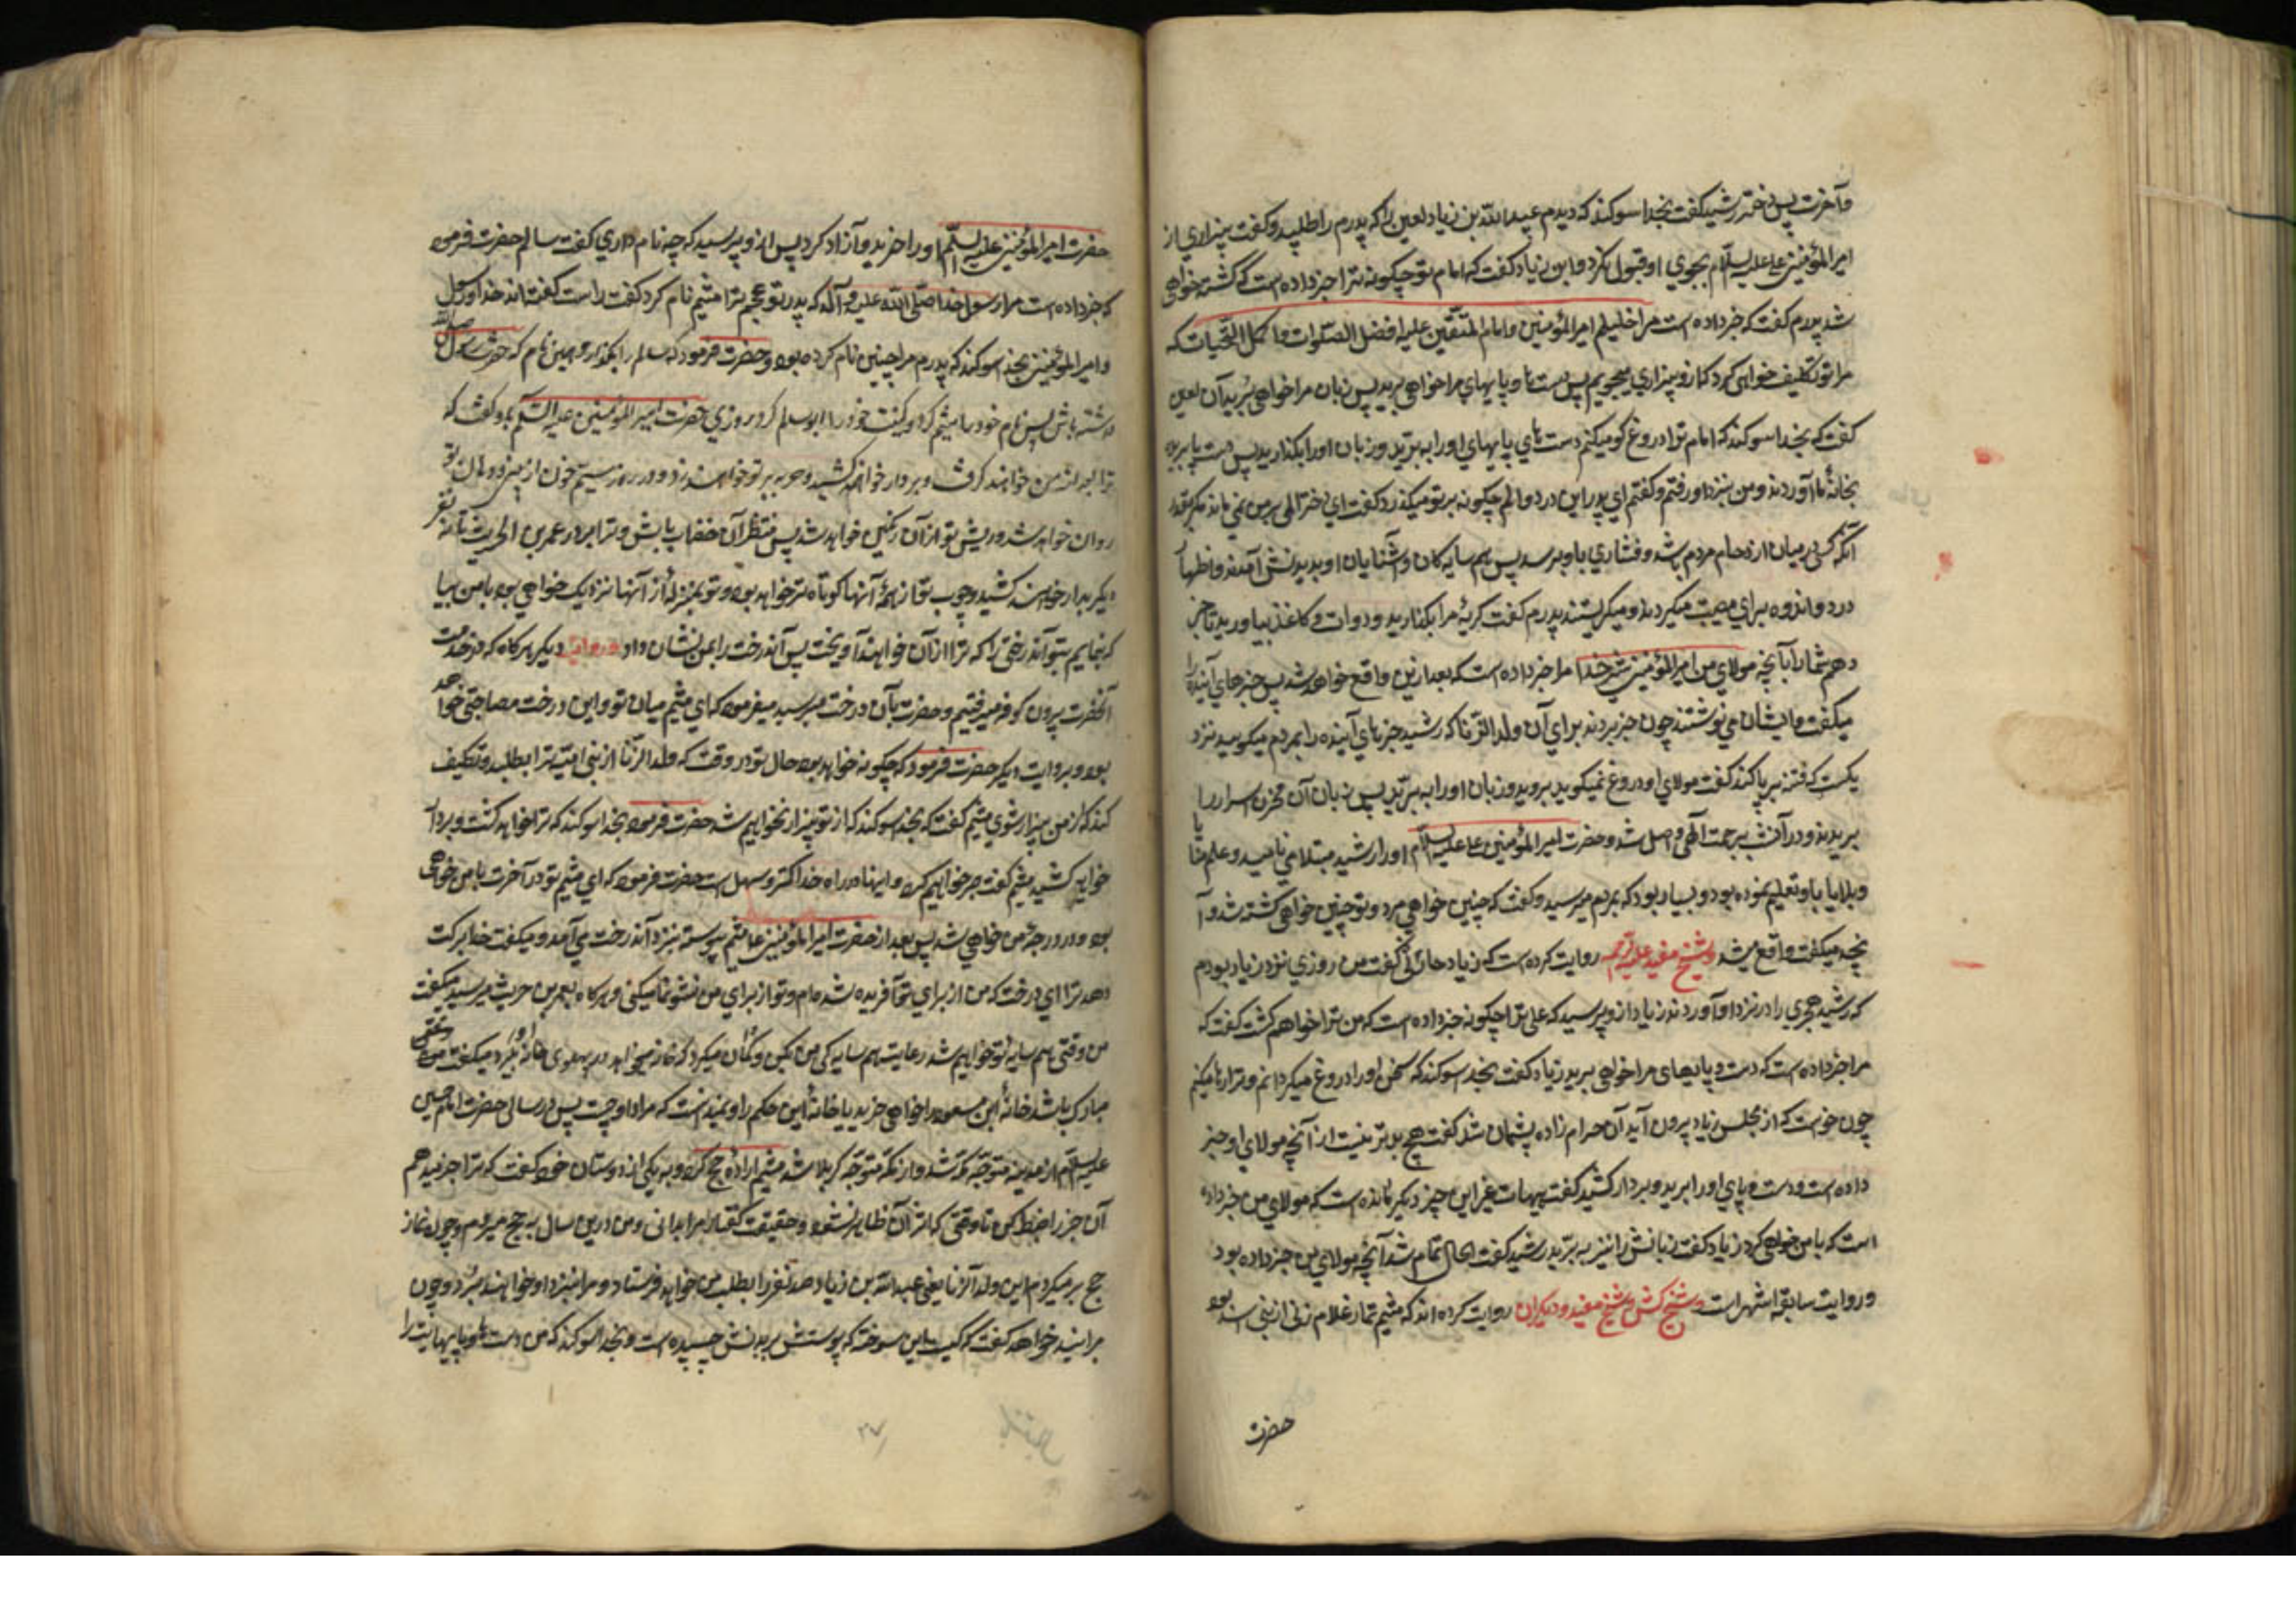 وآخرت پس دختر رشید گفت بخدا سوکند که دیدم عبیدالله بن زیاد لعین را که پدرم را طلبید و کفت بیزاري از
امیرالمؤمنین علی علیه السلام بجوي او قبول نکرد و ابن زیاد کفت که امام تو چکونه ترا خبر داده است که کشته خواهی
شد پدرم کفت که خبر داده است مرا خلیلم امیرالمؤمنین وامام المتقین علیه افضل الصلوات واکمل التحیات که
مرا تو تکلیف خواهی کرد که از و بیزاري بجویم پس دست ها و پایهاي مرا خواهی برید پس زبان مرا خواهی برید آن لعین
کفت که بخدا سوکند که امام ترا دروغ کو میکنم دست هاي پایهاي اورا ببرید و زبان اورا بکذارید پس دست پا بریده
بخانهٔ ما آوردند ومن بنزد او رفتم وکفتم اي پدر این درد و الم چکونه بر تو میکذرد کفت اي دختر المی بر من نمی نماید مکر بقدر
آنکه کسی در میان ازدحام مردم باشد و فشاري باو برسد پس هم سایه کان وآشنایان او بدیدنش آمدند واظهار
درد واندوه براي مصیبت میکردند ومیکریستند پدرم کفت کریه را بکذارید ودوات وکاغذ بیاورید تا خبر
دهم شما را بآنچه مولاي من امیرالمؤمنین مرا خبر داده است که بعد ازین واقع خواهد شد پس خبرهاي آینده را
میکفت وایشان می نوشتند چون خبر بردند براي آن ولدالزنا که رشید خبرهاي آینده را بمردم میکوید ونزد
یکست که فتنه برپا کند کفت مولاي او دروغ نمیکوید بروید وزبان اورا ببرید پس زبان آن مخزن اسرار را
بریدند ودر آن شب برحمت آلهی واصل شد وحضرت امیرالمؤمنین علی علیه السلام اورا رشید مبتلا می نامید وعلم منایا
وبلایا باو تعلیم نموده بود وبسیار بود که بمردم میرسید وکفت که چنین خواهی مرد وتو چنین خواهی کشته شد وآ
نچه میکفت واقع میشد وشیخ مفید علیه الرحمه روایت کرده است که زیاد حارثی کفت من روزي نزد زیاد بودم
که رشید هجري را در نزد او آوردند زیاد از و پرسید که علی ترا چکونه خبر داده است که من ترا خواهم کشت کفت که
مرا خبر داده است که دست و پایهاي مرا خواهی برید زیاد کفت بخدا سوکند که سخن اورا دروغ میکردانم وترا رها میکنم
چون خواست که از مجلس زیاد بیرون آید آن حرام زاده پشیمان شد کفت هیچ بدتر نیست از آنچه مولاي او خبر
داده است ودست وپاي اورا ببرید وبردار کشید کفت هیهات غیر این چیز دیکر مانده است که مولاي من خبر داده
است که با من خواهی کرد زیاد کفت زبانش را نیز ببرید رشید کفت الحال تمام شد آنچه مولاي من خبر داده بود
وروایت سابقه اشهر است وشیخ کشی وشیخ مفید ودیکران روایت کرده اند که میثم تمار غلام زنی از بنی اسد بود
حضرت
حضرت امیرالمؤمنین علیه السلام او را خرید وآزاد کرد پس از و پرسید که چه نام داري کفت سالم حضرت فرمود
که خبر داده است مرا رسول خدا صلی الله علیه وآله که پدر تو در عجم ترا میثم نام کرد کفت راست کفته اند خدا ورسول
وامیرالمؤمنین بخدا سوکند که پدرم مرا چنین نام کرده بود وحضرت فرمود که سالم را بکذار وهمین نام که حضرت رسول
داشته باش پس نام خود را میثم کرد وکنیت خود را ابوسالم کرد روزي حضرت امیرالمؤمنین علیه السلام باو کفت که
ترا بعد از من خواهند کرفت و بردار خواهند کشید وحربه بر تو خواهند زد ودر روز سیم خون از بینی ودهان تو
روان خواهد شد وریش تو از آن رنکین خواهد شد پس منتظر آن خضاب باش وترا بر در عمرو بن الحریث با نه نفر
دیکر بدار خواهند کشید وچوب تو از همهٔ آنها کوتاه تر خواهد بود وتو بمنزله از آنها نزدیک خواهی بود با من بیا
که بنمایم بتو آن درختی را که ترا از آن خواهند آویخت پس آن درخت را بمن نشان داد وروایت دیکر هرکاه که در خدمت
آنحضرت بیرون کوفه میرفتیم وحضرت بآن درخت میرسید میفرمود که اي میثم میان تو واین درخت مصاحبتی خواهد
بود وبروایت دیکر حضرت فرمود که چکونه خواهد بود حال تو در وقت که ولدالزنا از بنی امیه ترا بطلبد وتکلیف
کند که از من بیزار شوي میثم کفت که بخدا سوکند که از تو بیزار نخواهیم شد حضرت فرمود بخدا سوکند که ترا خواهد کشت وبردار
خواهد کشید میثم کفت صبر خواهیم کرد واینها در راه خدا کمتر وسهل است حضرت فرمود که اي میثم تو در آخرت با من خواهی
بود ودر درجهٔ من خواهی شد پس بعد از حضرت امیرالمؤمنین ع میثم پیوسته بنزد آن درخت می آمد ومیکفت خدا برکت
دهد ترا اي درخت که من از براي تو آفریده شده ام وتو از براي من نشو نما میکنی وهرکاه بعمر بن حریث میرسید میکفت
من وقتی هم سایه تو خواهیم شد رعایت هم سایه کی من بکن او کمان میکرد که خانه میخواهد در پهلوي خانه او بکیرد میکفت
مبارک باشد خانهٔ ابن مسعود را خواهی خرید یا خانهٔ ابن حکم را ونمیدانست که مراد او چیست پس در سالی حضرت امام حسین
علیه السلام از مدینه متوجه مکه شد واز مکه متوجه کربلا شد میثم ارادهٔ حج کرد وبه یکی از دوستان خود کفت که ترا خبر میدهم
آن خبر را ضبط کن تا وقتی که اثر آن ظاهر نشود وحقیقت کفتار مرا بدانی ومن درین سال به حج میروم وچون نماز
حج برمیکردم این ولدالزنا یعنی عبیدالله بن زیاد صد نفر را بطلب من خواهد فرستاد ومرا بنزد او خواهند برد وچون
مرا بیند خواهد کفت که کیست این سوخته که پوستش بر بدنش چسپیده است وبخدا سوکند که من دست ها وپایهایت را